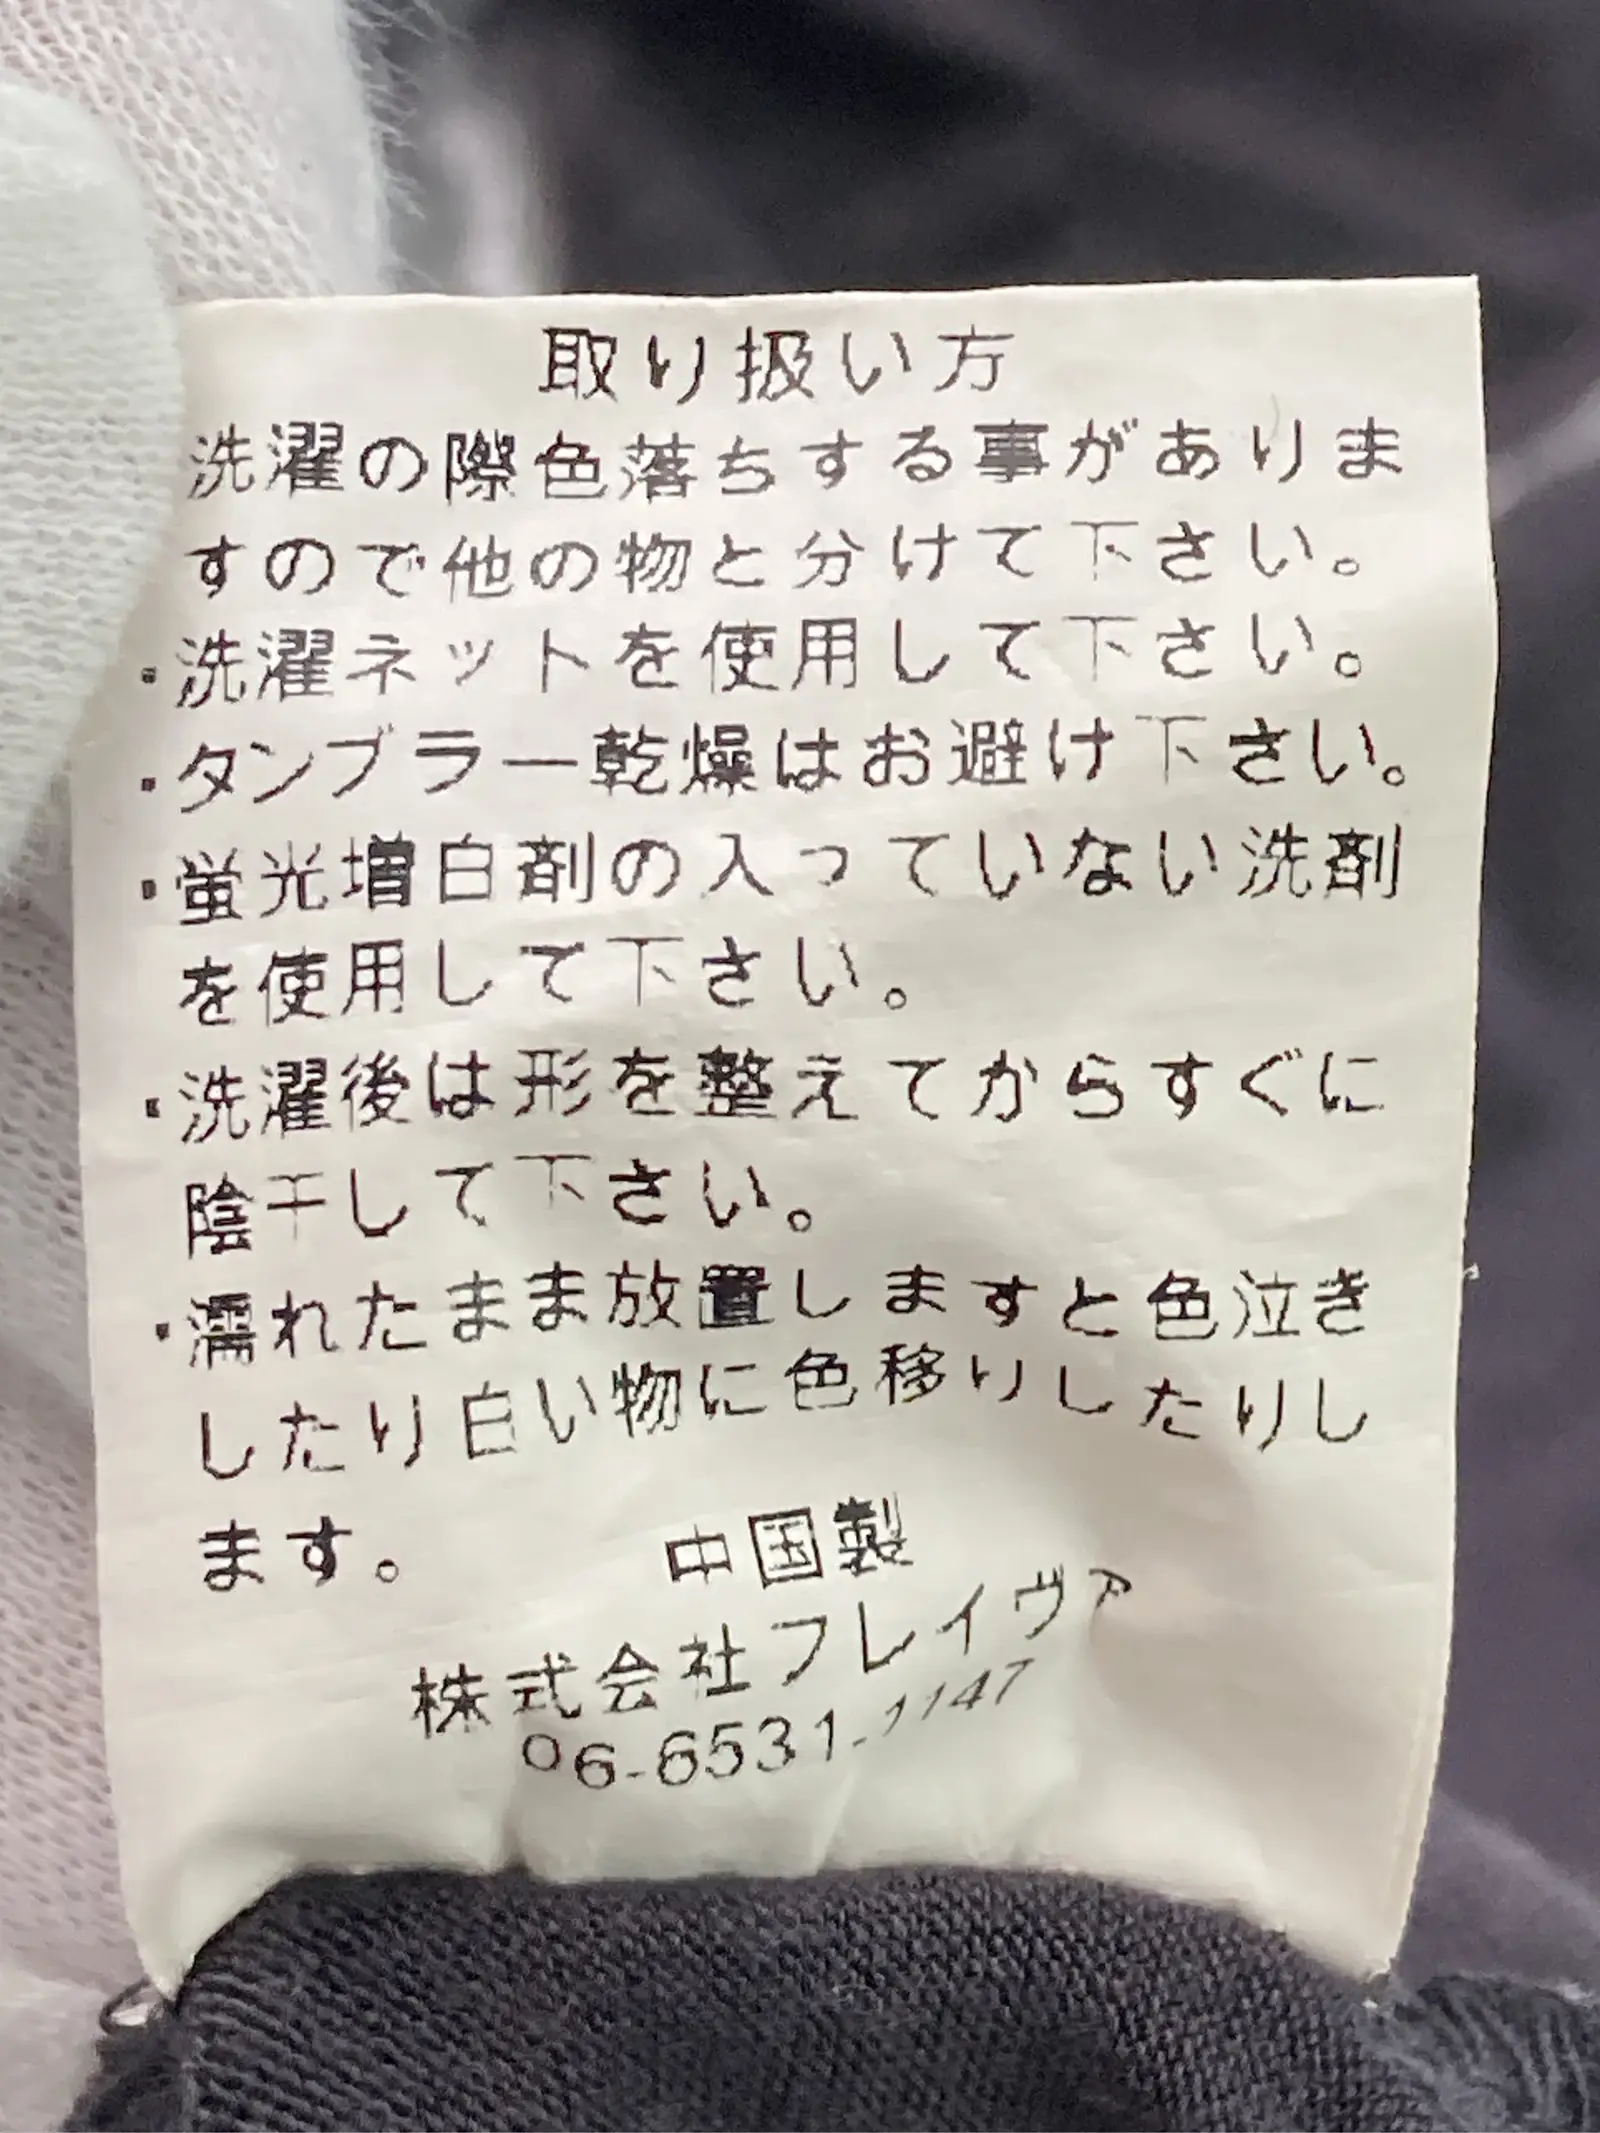 取り扱い方
洗濯の際色落ちする事がありま
すので他の物と分けて下さい。
・洗濯ネットを使用して下さい。
・タンブラー乾燥はお避け下さい。
・蛍光増白剤の入っていない洗剤
を使用して下さい。
・洗濯後は形を整えてからすぐに
陰干して下さい。
・濡れたまま放置しますと色泣き
したり白い物に色移りしたりし
ます。
中国製
株式会社フレイヴァ
06-6531-1147